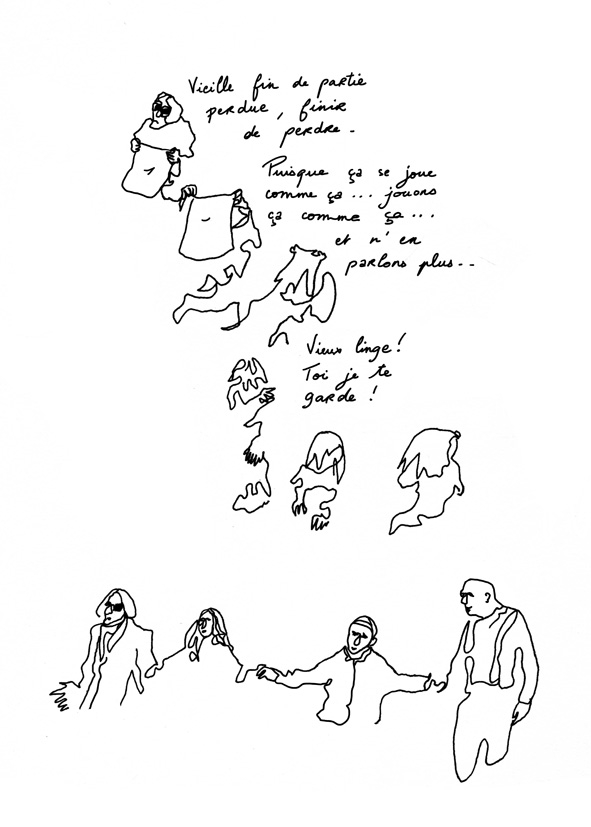 Vieille fin de partie
perdue, finir
de perdre -
Puisque ça se joue
comme ça ... jouons
ça comme ça ...
et n'en
parlons plus --
Vieux linge !
Toi je te
garde !